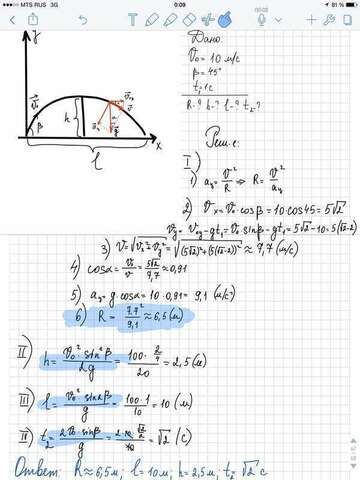 MTS RUS 3G
0:09
81 %
y
h
β
x
l
Дано:
V₀ = 10 м/с
β = 45°
t₁ = 1с
R-? h-? l-? t₂?
Реш-е:
I)
1) aₙ = V²/R ⇒ R = V²/aₙ
2) Vx = V₀·cosβ = 10·cos45 = 5√2
Vy = V₀y - gt₁ = V₀·sinβ - gt₁ = 5√2 - 10 = 5(√2-2)
3) V = √(Vx²+Vy²) = √((5√2)²+(5(√2-2))²) ≈ 7,7 (м/с)
4) cosα = Vx/V = 5√2/7,7 ≈ 0,91
5) aₙ = g cosα = 10·0,91 = 9,1 (м/с²)
6) R = 7,7²/9,1 ≈ 6,5 (м)
II) h = V₀²·sin²β/2g = 100·2/4/20 = 2,5 (м)
III) l = V₀² sin2β/g = 100·1/10 = 10 (м)
t₂ = 2V₀·sinβ/g = 2·10·√2/2/10 = √2 (с)
Ответ: R ≈ 6,5м; l = 10м; h = 2,5м; t₂ = √2 с